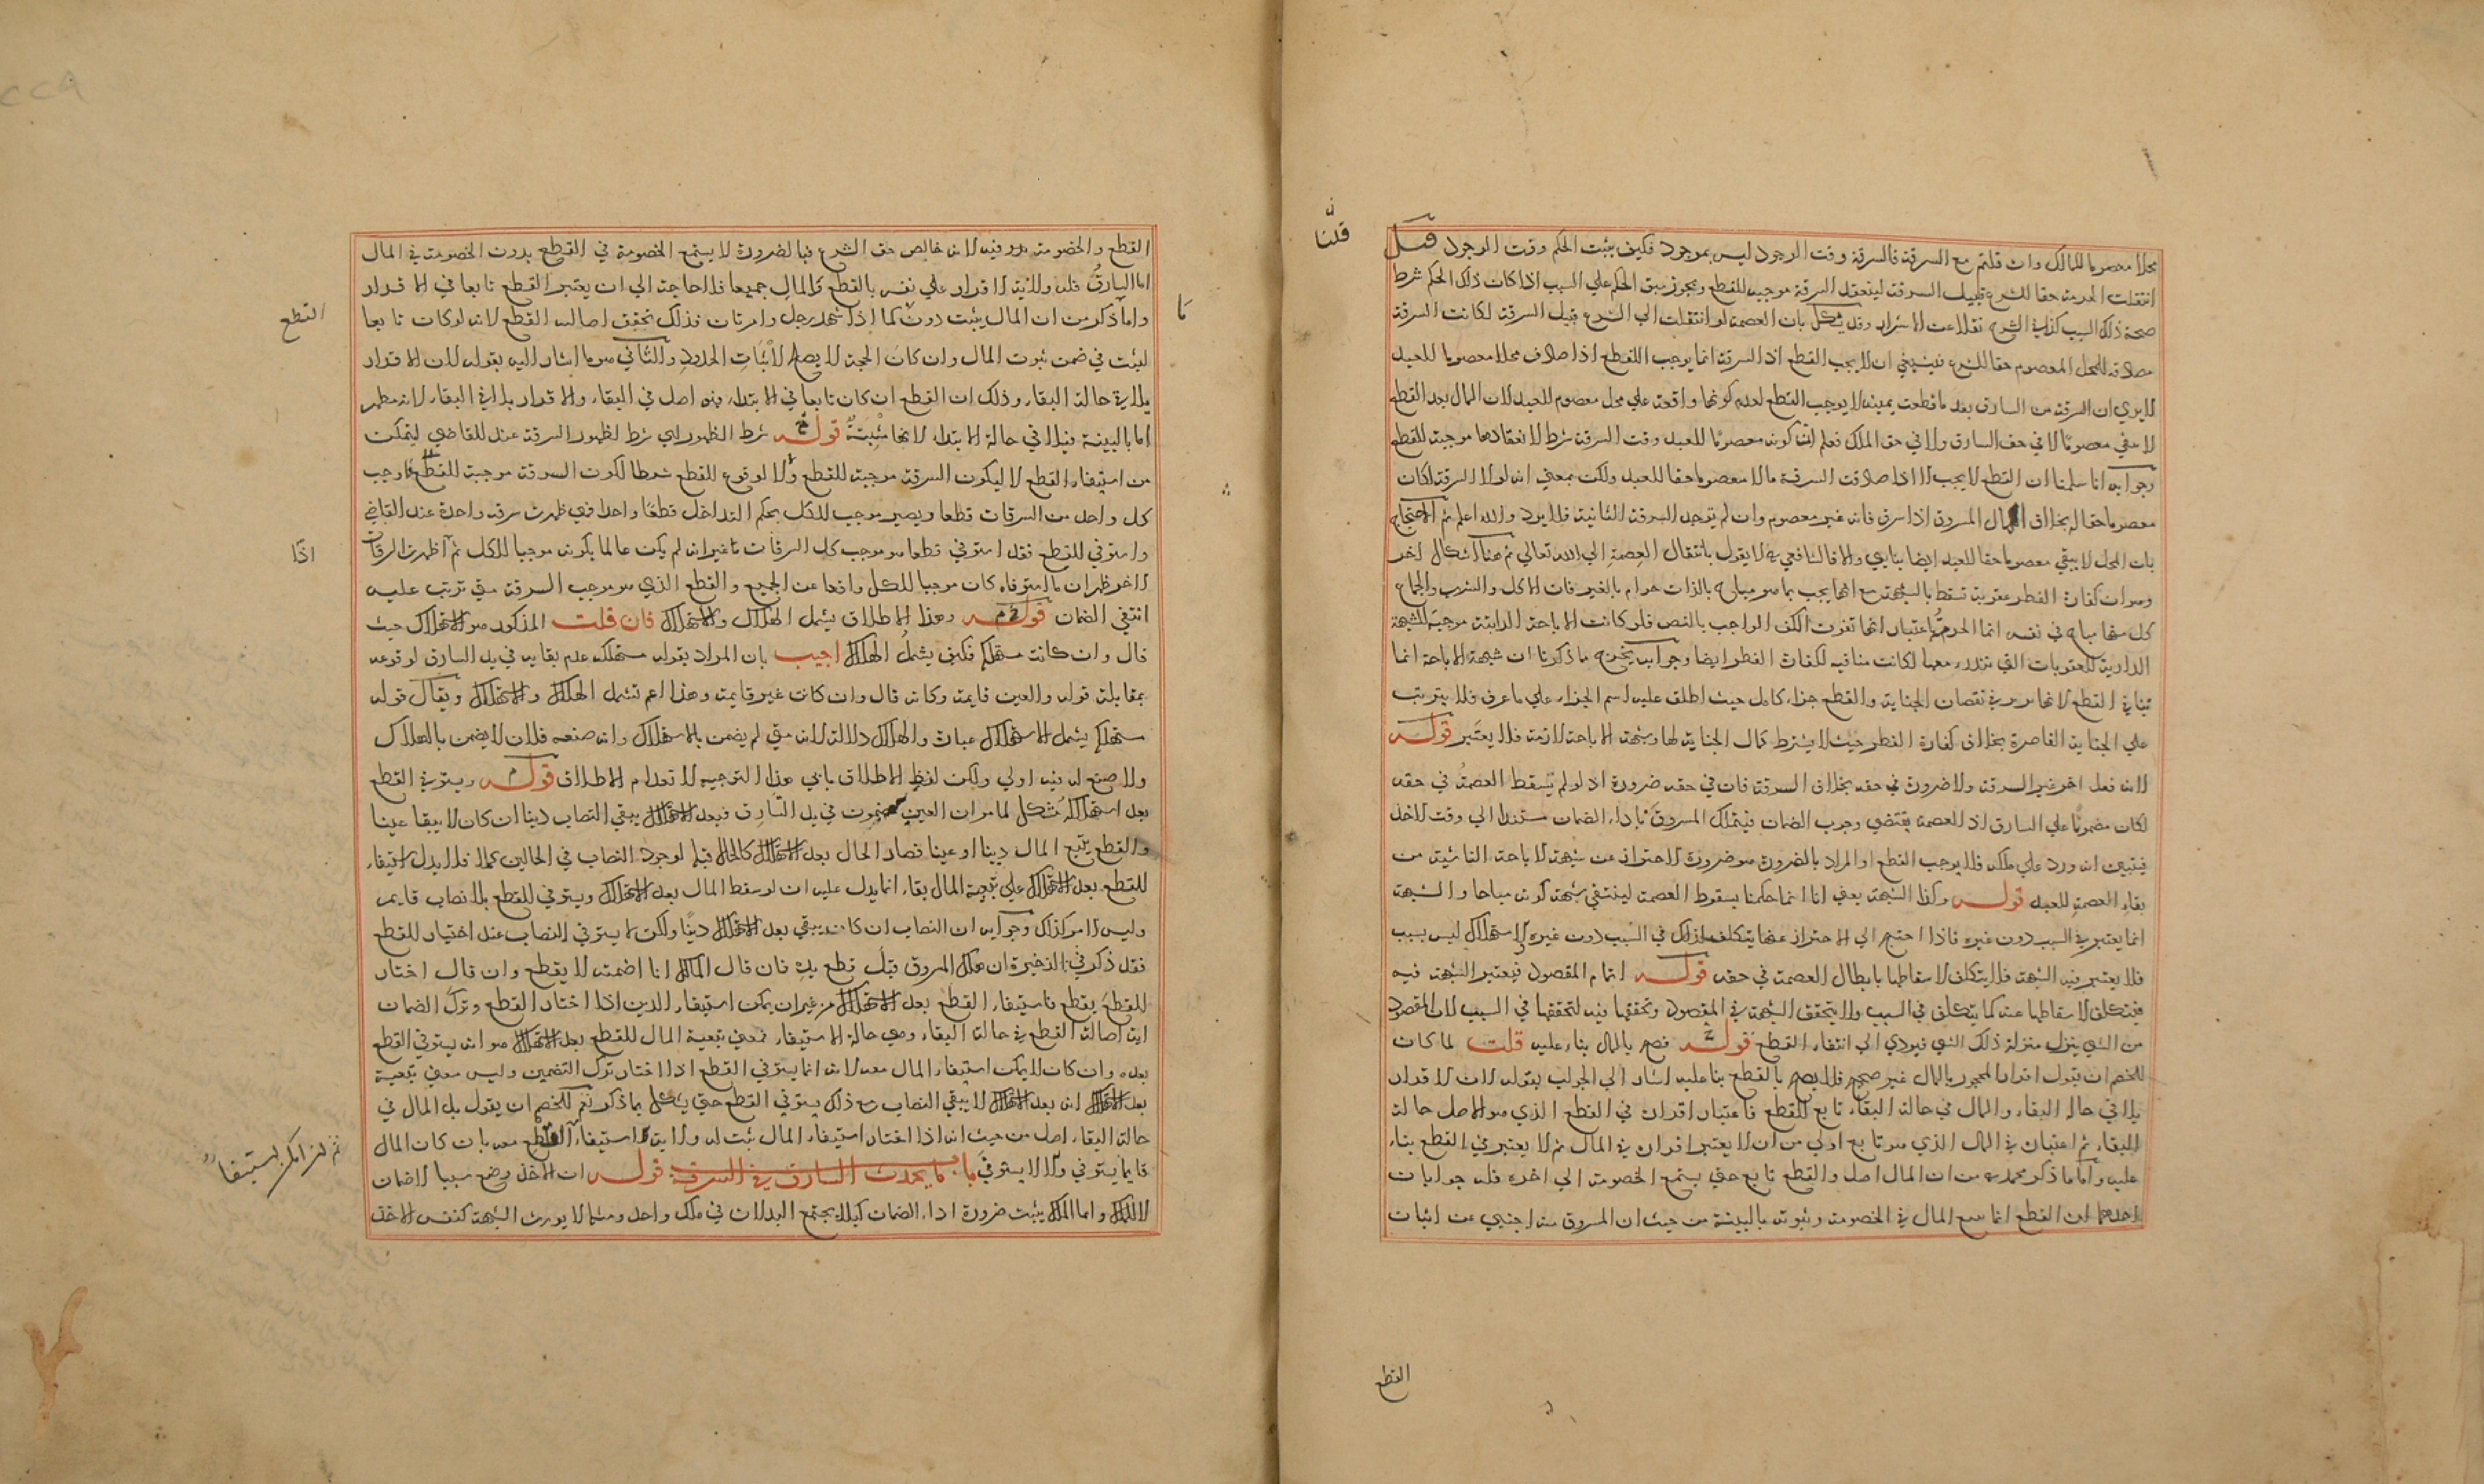 قلنا
محلا معصوما للمالك وان قلتم مع السرقة فالسرقة وقت الوجود ليس بموجود فكيف يثبت الحكم وقت الوجود قيل
انتقلت العصمة حقا للشرع قبيل السرقة لينعقد السرقة موجبة للقطع ويجوز سبق الحكم علي السبب اذا كان ذلك الحكم شرط
صحة ذلك السبب كذا في الشرح نقلا عن الاسرار وقد يشكل بان العصمة لو انتقلت الي الشرع قبيل السرقة لكانت السرقة
مصادفة للمحل المعصوم حقا للشرع فينبغي ان لا يجب القطع اذ السرقة انما يوجب القطع اذا صادف محلا معصوما للعبد
الا يري ان السرقة من السارق بعد ما قطعت يمينه لا يوجب القطع لعدم كونها واقعة علي محل معصوم للعبد لان المال بعد القطع
لا يبقي معصوما لا في حق السارق ولا في حق الملك فعلم ان كونه معصوما للعبد وقت السرقة شرط لانعقادها موجبة للقطع
وجوابه انا سلمنا ان القطع لا يجب الا اذا صادفت السرقة مالا معصوما حقا للعبد ولكن بمعني انه لولا السرقة لكان
معصوما حقا له بخلاف المال المسروق اذا سرق فانه غير معصوم وان لم توجد السرقة الثانية فلا يرد والله اعلم ثم الاحتجاج
بان المحل لا يبقي معصوما حقا للعبد ايضا بنايي والا فالشافعي لا يقول بانتقال العصمة الي الله تعالي ثم هنا اشكال اخر
وهو ان كفارة الفطر عقوبة تسقط بالشبهة مع انها يجب بما هو مباح بالذات حرام بالغير فان الاكل والشرب والجماع
كل منها مباح في نفسه انما الحرمة باعتبار انها تفوت الكف الواجب بالنص فلو كانت الاباحة الذاتية موجبة للشبهة
الدارية للعقوبات التي تندرء معها لكانت منافية لكفارة الفطر ايضا وجوابه يخرج ما ذكرنا ان شبهة الاباحة انما
ينافي القطع لانها تورث نقصان الجناية والقطع جزاء كامل حيث اطلق عليه اسم الجزاء علي ما عرف فلا يترتب
علي الجناية القاصرة بخلاف كفارة الفطر حيث لا يشترط كمال الجناية لها وشبهة الاباحة لازمة فلا يعتبر قوله
لانه فعل اخر غير السرقة ولا ضرورة في حقه بخلاف السرقة فان في حقه ضرورة اذ لو لم تسقط العصمة في حقه
لكان مضمونا علي السارق اذ العصمة يقتضي وجوب الضمان فيتملك المسروق باداء الضمان مستندا الي وقت الاخذ
فيتبين انه ورد علي ملكه فلا يوجب القطع او المراد بالضرورة هو ضرورة الاحتراز عن شبهة الاباحة الناشية من
بقاء العصمة للعبد قوله وكذا الشبهة يعني انا انما حكمنا بسقوط العصمة لينتفي شبهة كونه مباحا والشبهة
انما يعتبر في السبب دون غيره فاذا احتيج الي الاحتراز عنها يتكلف لذلك في السبب دون غيره والاستهلاك ليس بسبب
فلا يعتبر فيه الشبهة فلا يتكلف لاسقاطها بابطال العصمة في حقه قوله اتمام المقصود فيعتبر الشبهة فيه
فيتكلف لاسقاطها عنه كما يتكلف في السبب ولا يتحقق الشبهة في المقصود وتحققها فيه لتحققها في السبب لان المقصود
من الشي ينزل منزلة ذلك الشي فيودي الي انتفاء القطع قوله فصح بالمال بناء عليه قلت لما كان
للخصم ان يقول اقرار المحجور بالمال غير صحيح فلا يصح بالقطع بنا عليه اشار الي الجواب بقوله لان الاقرار
يلاقي حالة البقاء والمال في حالة البقاء تابع للقطع فاعتبار اقراره في القطع الذي هو الاصل حالة
البقاء ثم اعتباره في المال الذي هو تابع اولي من ان لا يعتبر اقراره في المال ثم لا يعتبر في القطع بناء
عليه واما ما ذكر محمد رح من ان المال اصل والقطع تابع حتي يسمع الخصومة الي اخره فله جوابان
احدهما ان القطع انما تبع المال في الخصومة وثبوته بالبينة من حيث ان المسروق منه اجنبي عن اثبات
القطع
القطع والخصومة فيه لانه خالص حق الشرع فبالضرورة لا يستمع الخصومة في القطع بدون الخصومة في المال
اما السارق فله ولاية الاقرار علي نفسه بالقطع والمال جميعا فلا حاجة الي ان يعتبر القطع تابعا في الاقرار
واما ذكر من ان المال يثبت دونه كما اذا شهد رجل وامرتان فذلك تحقق اصالة القطع لانه لو كان تابعا
القطع
لثبت في ضمن ثبوت المال وان كان الحجة لا يصلح لاثبات الحدود والثاني هو ما اشار اليه بقوله لان الاقرار
يلاقي حالة البقاء وذلك ان القطع ان كان تابعا في الابتداء فهو اصل في البقاء والاقرار يلاقي البقاء لانه مظهر
اما بالبينة فيلاقي حالة الابتداء لانها مثبتة قوله شرط الظهور اي شرط لظهور السرقة عند القاضي ليتمكن
من استيفاء القطع لا ليكون السرقة موجبة للقطع ولا لوقوع القطع شرطا لكون السرقة موجبة للقطع فاوجب
كل واحد من السرقات قطعا ويصير موجب الكل بحكم التداخل قطعا واحدا فمتي ظهرت سرقة واحدة عند القاضي
واستوفي القطع فقد استوفي قطعا هو موجب كل السرقات غير انه لم يكن عالما بكونه موجبا للكل ثم اظهرت السرقات
اذا
الاخر ظهر ان ما استوفاه كان موجبا للكل واقعا عن الجميع والقطع الذي هو موجب السرقة متي ترتب عليه
انتفي الضمان قوله وهذا الاطلاق يشمل الهلاك والاستهلاك فان قلت المذكور هو الاستهلاك حيث
قال وان كانت مستهلكة فكيف يشمل الهلاك اجيب بان المراد بقوله مستهلكة عدم بقايه في يد السارق لوقوعه
بمقابلة قوله والعين قايمة وكانه قال وان كانت غير قايمة وهذا اعم تشمل الهلاك والاستهلاك ويقال قوله
مستهلكة يشمل الاستهلاك عبارة والهلاك دلالة لانه متي لم يضمن بالاستهلاك وانه صنعه فلان لا يضمن بالهلاك
ولا صنع له فيه اولي ولكن لفظ الاطلاق يابي هذا التوجيه لانعدام الاطلاق قوله ويستوفي القطع
بعد استهلاكه يشكل لما مر ان العين مضمون في يد السارق فبعد الاستهلاك يبقي النصاب دينا ان كان لا يبقا عينا
والقطع يتبع المال دينا او عينا فصار الحال بعد الاستهلاك كالحال قبله لوجود النصاب في الحالين فلا يدل استيفاء
القطع بعد الاستهلاك علي تبعية المال بقاء انما يدل عليه ان لو سقط المال بعد الاستهلاك ويستوفي القطع بلا نصاب قايم
وليس الامر كذلك وجوابه ان النصاب ان كان يبقي بعد الاستهلاك دينا ولكن لا يستوفي النصاب عند اختيار القطع
فقد ذكر في الذخيرة ان هلك المسروق قبل قطع يده فان قال المالك انا اضمنه لا يقطع وان قال اختار
القطع يقطع فاستيفاء القطع بعد الاستهلاك من غير ان يمكن استيفاء الدين اذا اختار القطع وترك الضمان
اية اصالة القطع في حالة البقاء وهي حالة الاستيفاء فمعني تبعية المال للقطع بعد الاستهلاك هو انه يستوفي القطع
بعده وان كان لا يمكن استيفاء المال معه لانه انما يستوفي القطع اذا اختار ترك التضمين وليس معني تبعية
بعد الاستهلاك انه بعد الاستهلاك لا يبقي النصاب مع ذلك يستوفي القطع حتي يشكل بما ذكر نعم للخصم ان يقول بل المال في
حالة البقاء اصل من حيث انه اذا اختار استيفاء المال ثبت له ولاية استيفاء القطع معه بان كان المال
قايما يستوفي والا لا يستوفي باب ما يحدث السارق في السرقة قوله ان الاخذ وضع سببا لاضمان
لا للملك واما الملك يثبت ضرورة اداء الضمان كيلا يجتمع البدلان في ملك واحد ومثله لا يورث الشبهة كنفس الاخذ